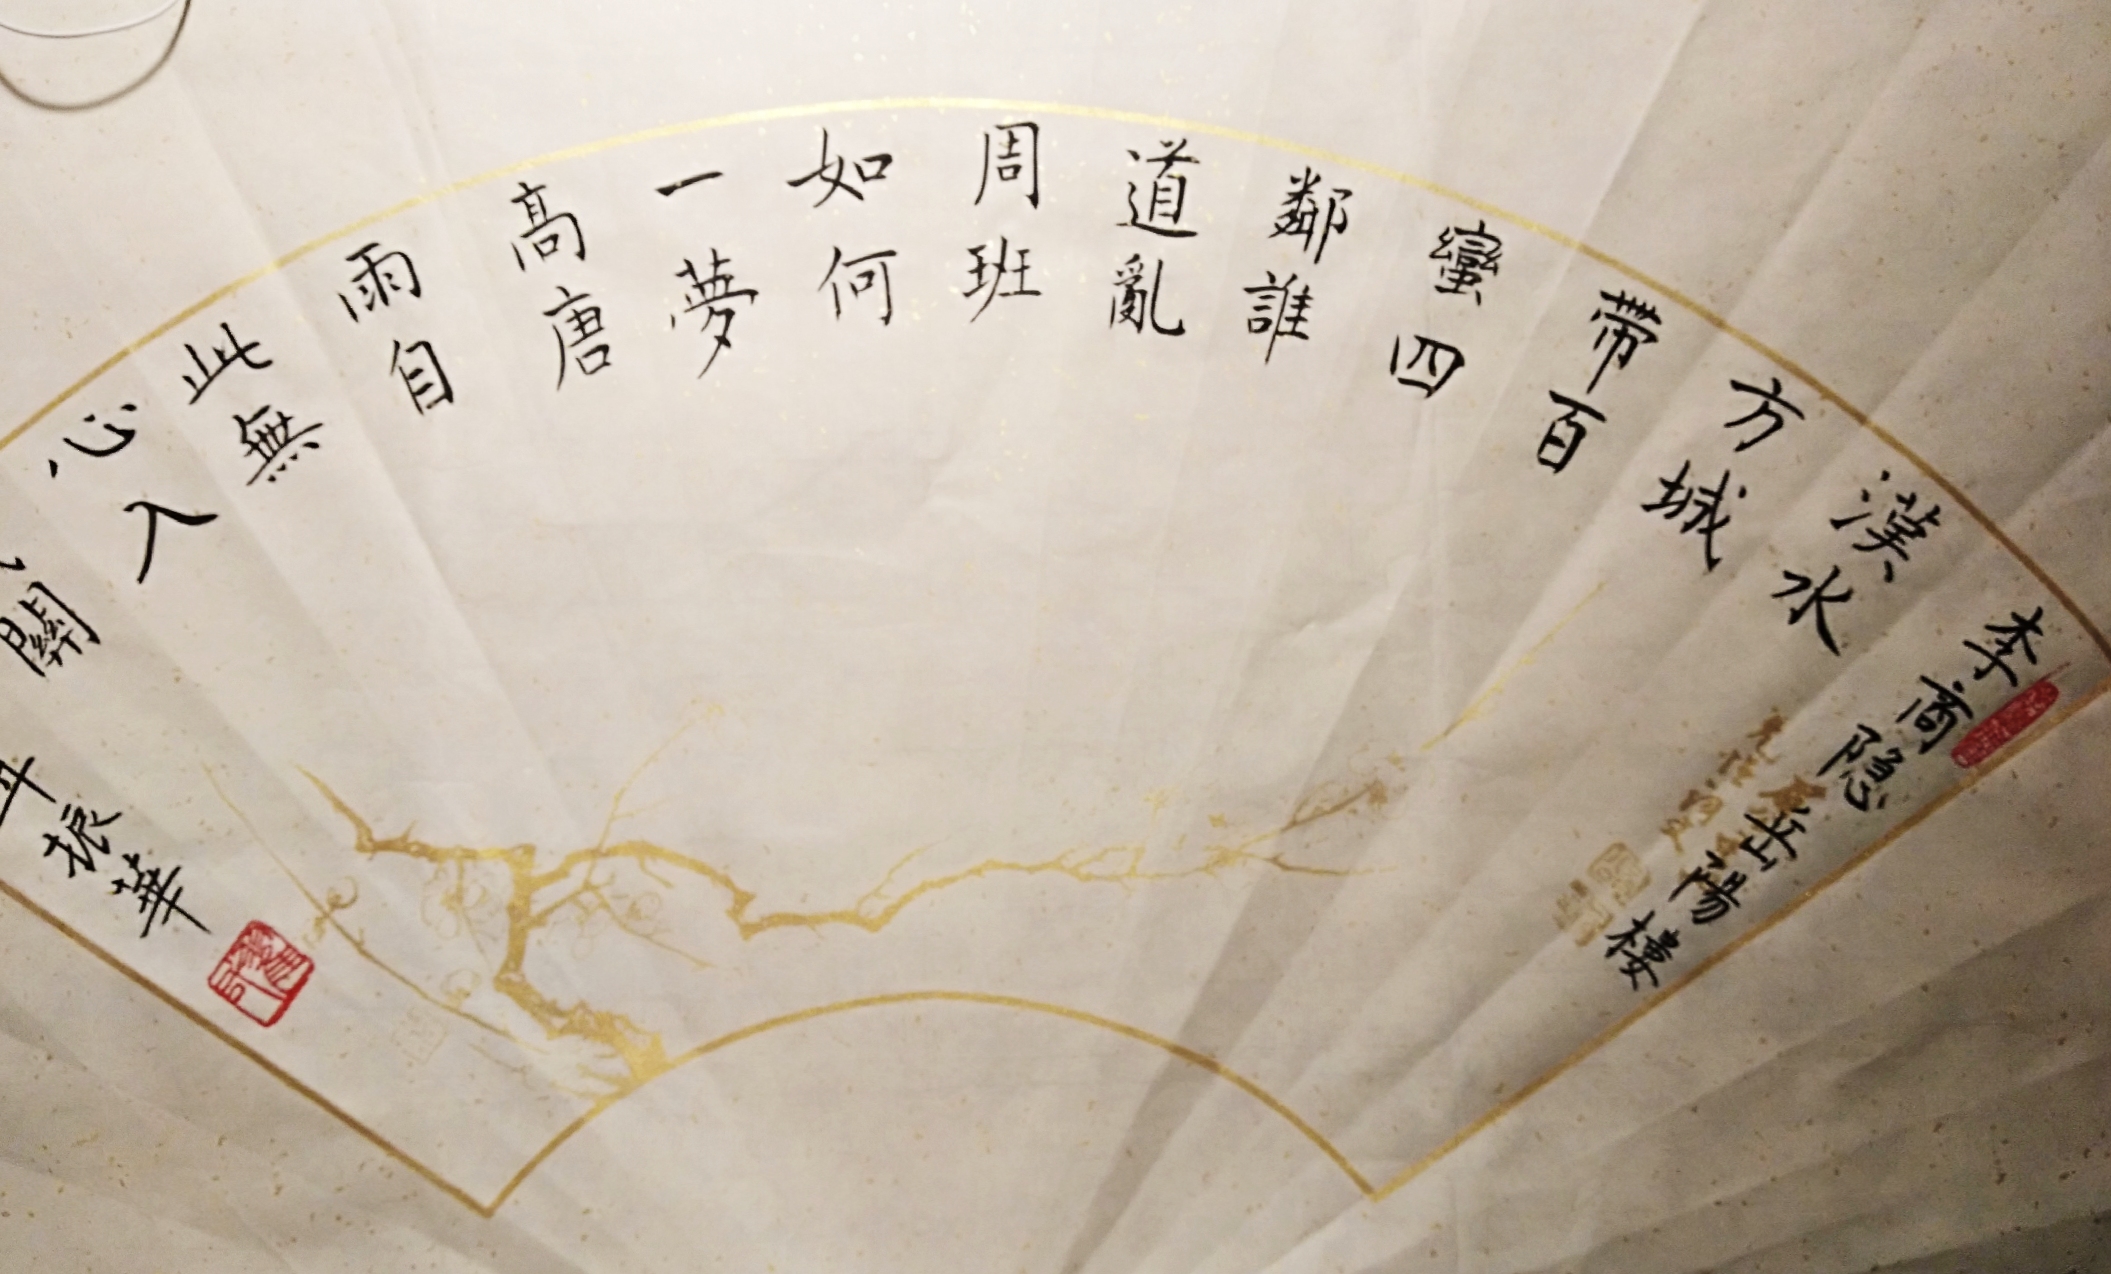 李商隐岳陽樓
漢水
方城
帶百
蠻四
鄰誰
道亂
周班
如何
一夢
高唐
雨自
此無
心入
關
振華